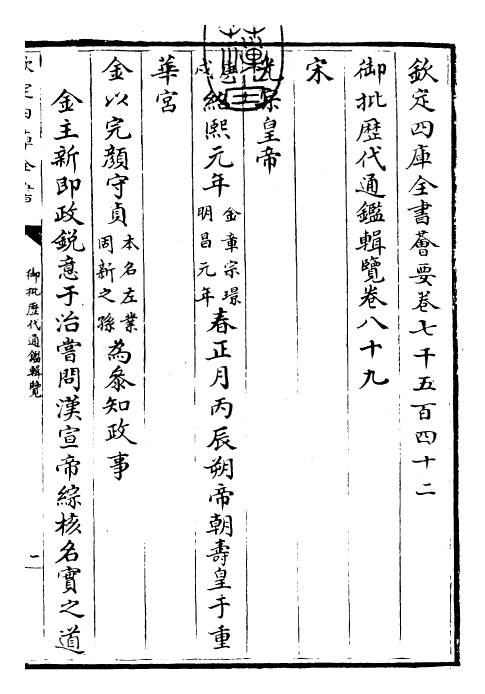 欽定四庫全書薈要卷七千五百四十二
御批歷代通鑑輯覽卷八十九
宋
光宗皇帝
庚戌
紹熙元年
金章宗璟
明昌元年
春正月丙辰朔帝朝壽皇于重
華宮
金以完顏守貞
本名左業
周新之孫
為叅知政事
金主新即政銳意于治嘗問漢宣帝綜核名實之道
欽定四庫全書
御批歷代通鑑輯覽
一